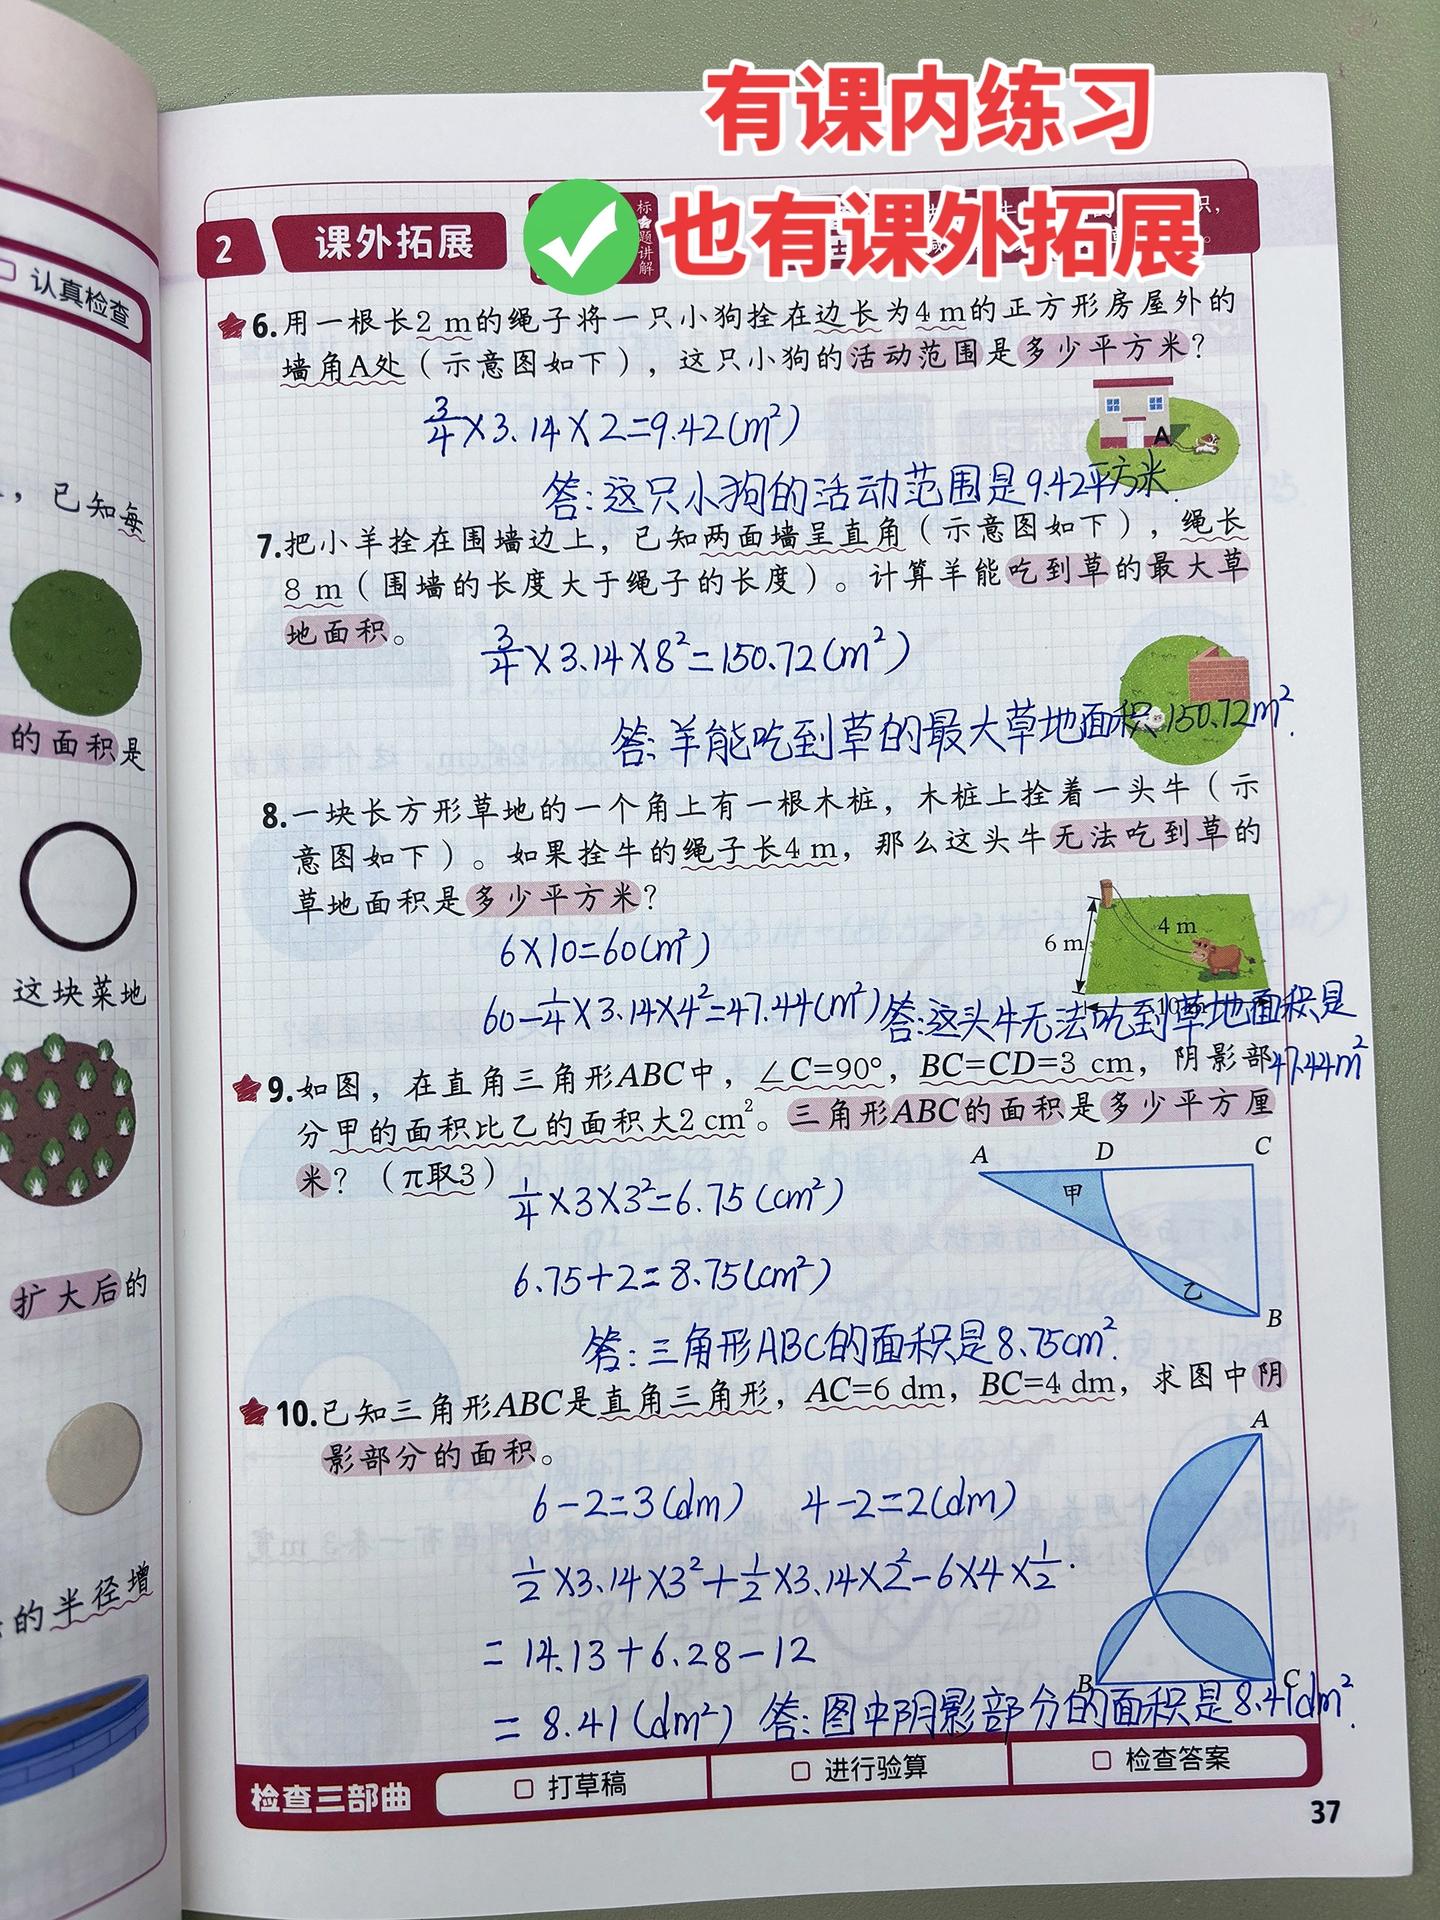 有课内练习
也有课外拓展
2 课外拓展
标题讲解
识，
认真检查
，已知每
的面积是
这块菜地
扩大后的
的半径增
6.用一根长2 m的绳子将一只小狗拴在边长为4 m的正方形房屋外的
墙角A处（示意图如下），这只小狗的活动范围是多少平方米？
3/4×3.14×2=9.42(m²)
A
答:这只小狗的活动范围是9.42平方米.
7.把小羊拴在围墙边上，已知两面墙呈直角（示意图如下），绳长
8 m（围墙的长度大于绳子的长度）。计算羊能吃到草的最大草
地面积。
3/4×3.14×8²=150.72(m²)
答:羊能吃到草的最大草地面积150.72m².
8.一块长方形草地的一个角上有一根木桩，木桩上拴着一头牛（示
意图如下）。如果拴牛的绳子长4 m，那么这头牛无法吃到草的
草地面积是多少平方米？
6×10=60(m²)
4 m
6 m
60-1/4×3.14×4²=47.44(m²) 答:这头牛无法吃到草地面积是
47.44m²
9.如图，在直角三角形ABC中，∠C=90°，BC=CD=3 cm，阴影部
分甲的面积比乙的面积大2 cm²。三角形ABC的面积是多少平方厘
米？（π取3）
A D C
甲
乙
B
1/4×3×3²=6.75(cm²)
6.75+2=8.75(cm²)
答:三角形ABC的面积是8.75cm².
10.已知三角形ABC是直角三角形，AC=6 dm，BC=4 dm，求图中阴
影部分的面积。
A
6-2=3(dm) 4-2=2(dm)
1/2×3.14×3²+1/2×3.14×2²-6×4×1/2.
=14.13+6.28-12
B C
=8.41(dm²) 答:图中阴影部分的面积是8.41dm².
检查三部曲 打草稿 进行验算 检查答案
37